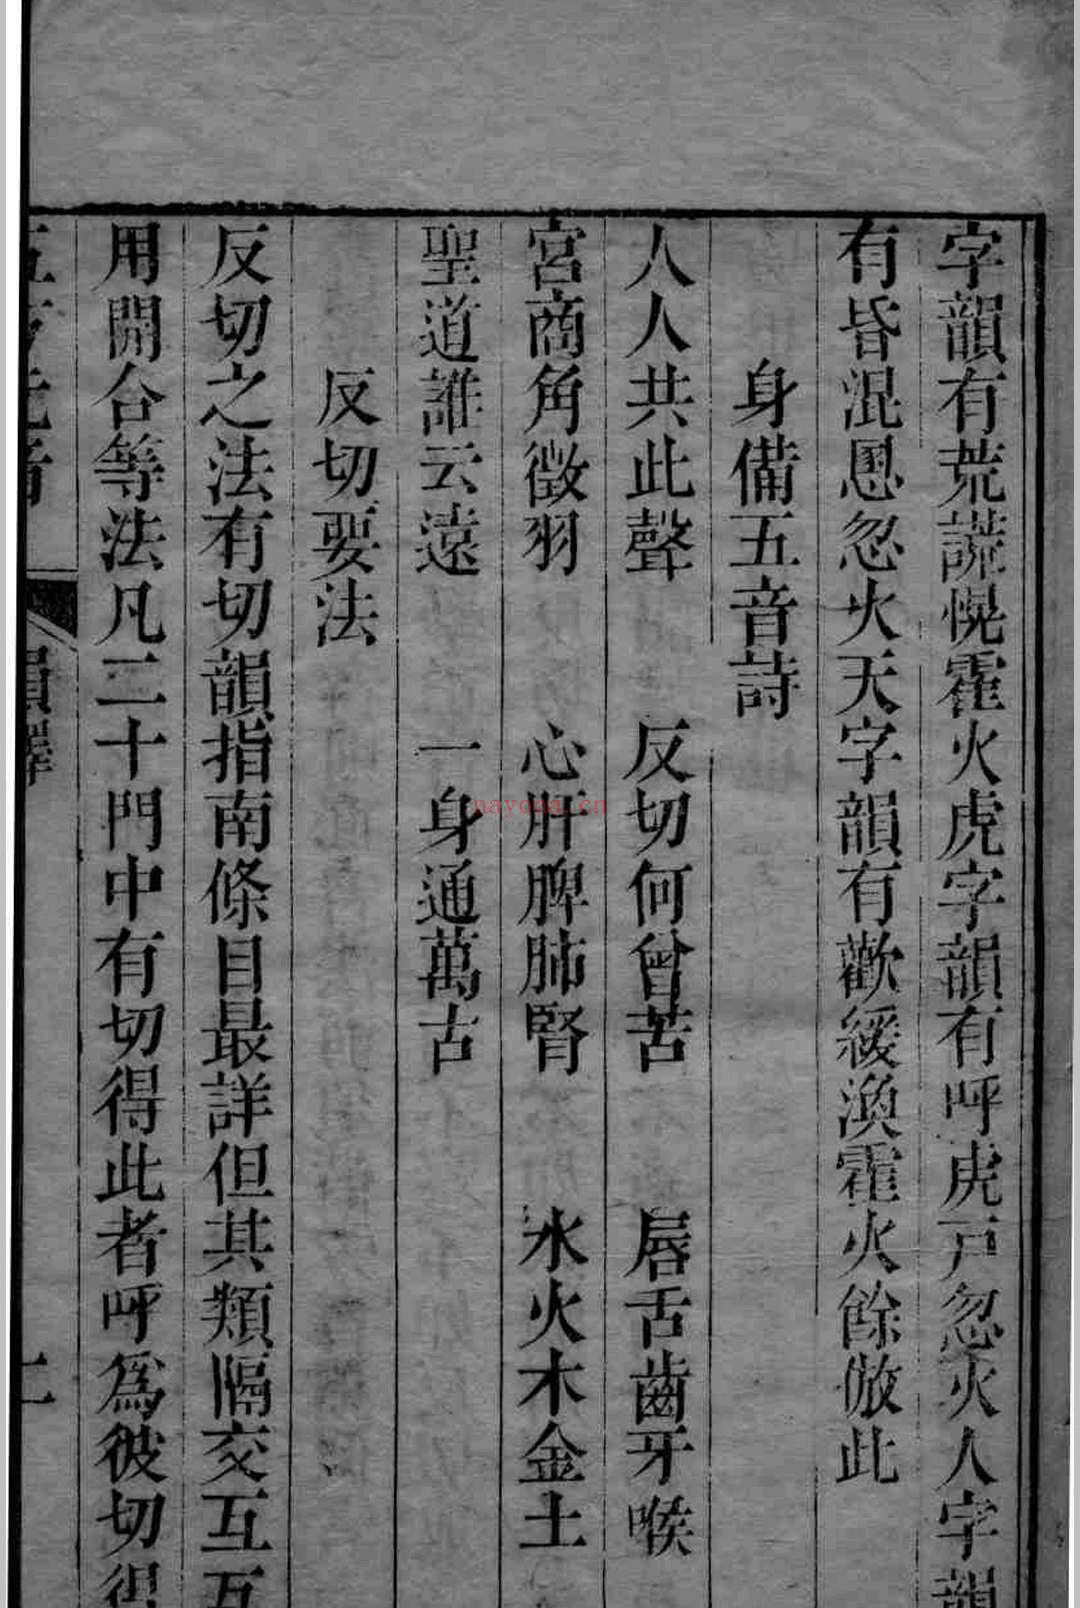 字韻有荒謊幌霍火虎字韻有呼虎戸忽火人字韻
有昏混惛忽火天字韻有歡緩渙霍火餘倣此
身備五音詩
人人共此聲 反切何曾苦 唇舌齒牙喉
宮商角徵羽 心肝脾肺腎 水火木金土
聖道誰云遠 一身通萬古
反切要法
反切之法有切韻指南條目最詳但其類隔交互互
用開合等法凡二十門中有切得此者呼為彼切得
韻釋
nayona.cn